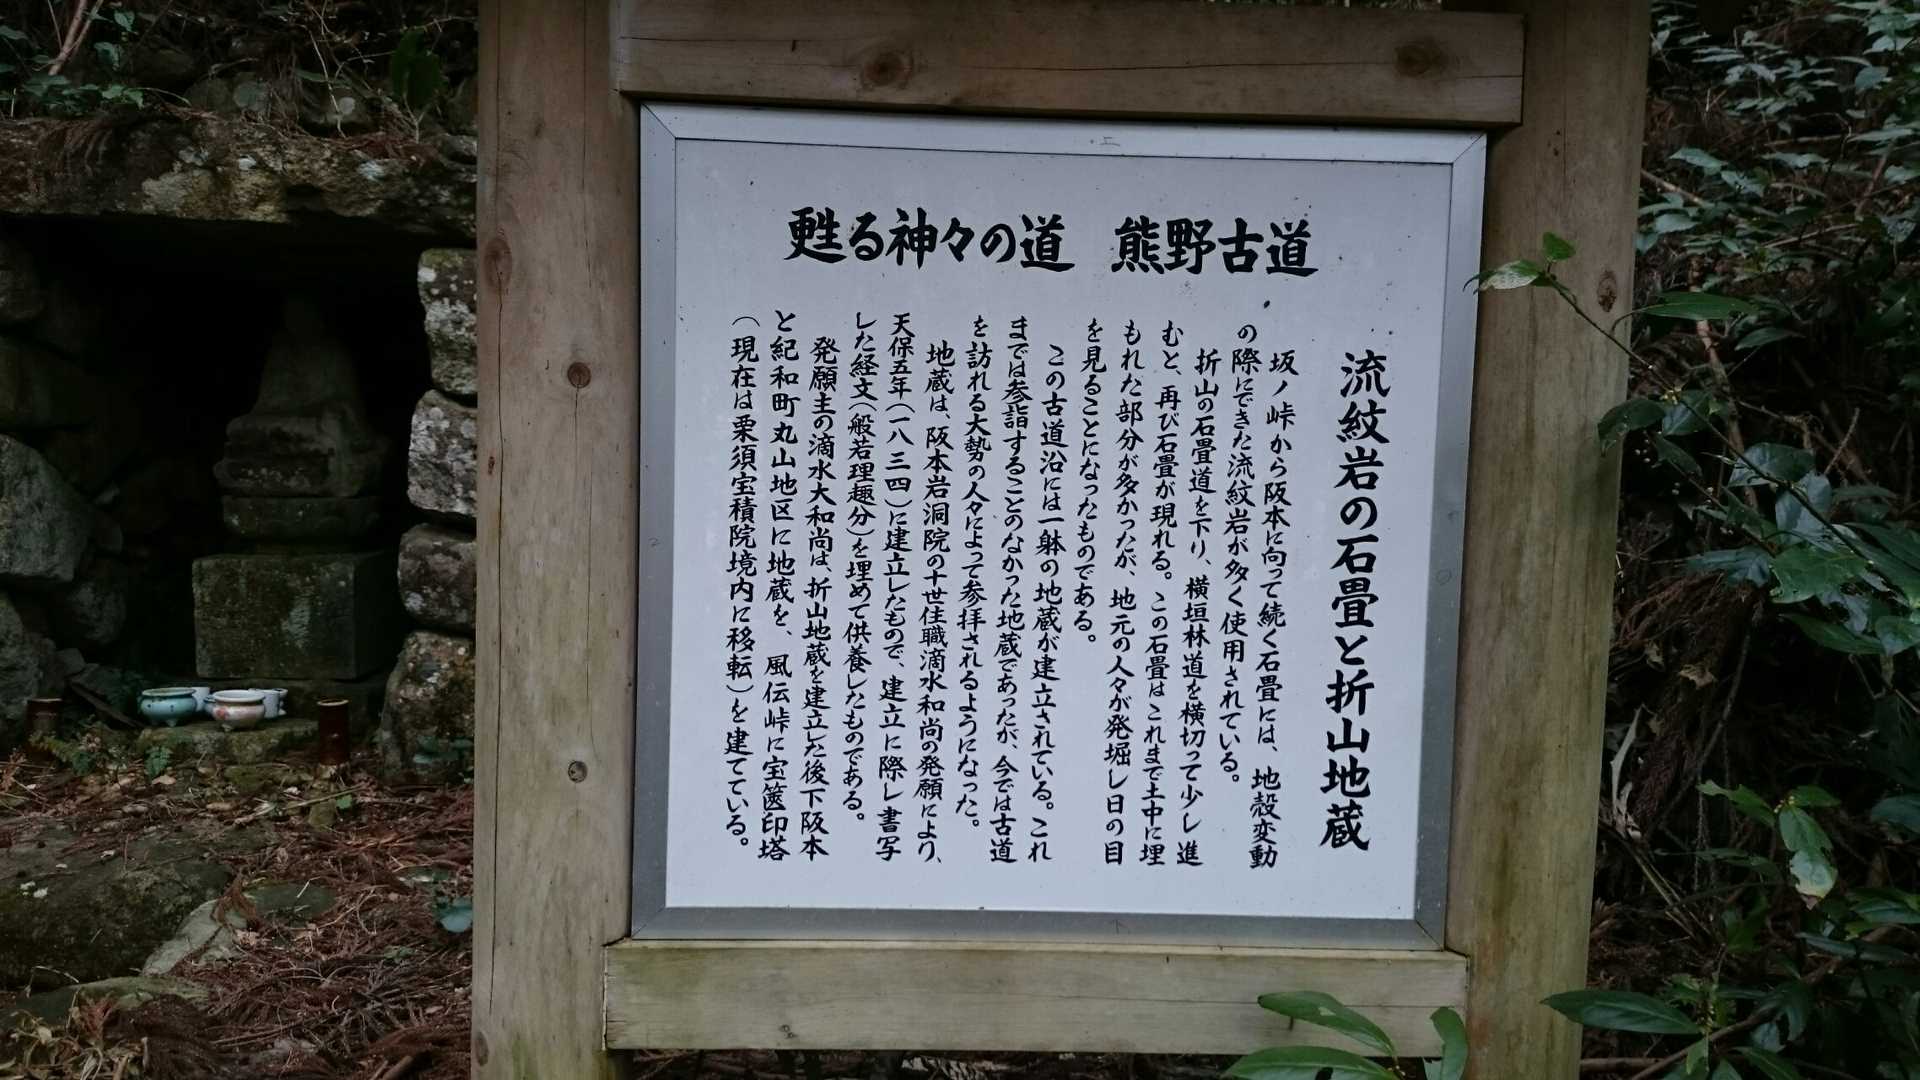 甦る神々の道　熊野古道
流紋岩の石畳と折山地蔵
坂ノ峠から阪本に向って続く石畳には、地殻変動
の際にできた流紋岩が多く使用されている。
折山の石畳道を下り、横垣林道を横切って少し進
むと、再び石畳が現れる。この石畳はこれまで土中に埋
もれた部分が多かったが、地元の人々が発堀し日の目
を見ることになったものである。
この古道沿には一躰の地蔵が建立されている。これ
までは参詣することのなかった地蔵であったが、今では古道
を訪れる大勢の人々によって参拝されるようになった。
地蔵は、阪本岩洞院の十世住職滴水和尚の発願により、
天保五年（一八三四）に建立したもので、建立に際し書写
した経文（般若理趣分）を埋めて供養したものである。
発願主の滴水大和尚は、折山地蔵を建立した後下阪本
と紀和町丸山地区に地蔵を、風伝峠に宝篋印塔
（現在は栗須宝積院境内に移転）を建てている。